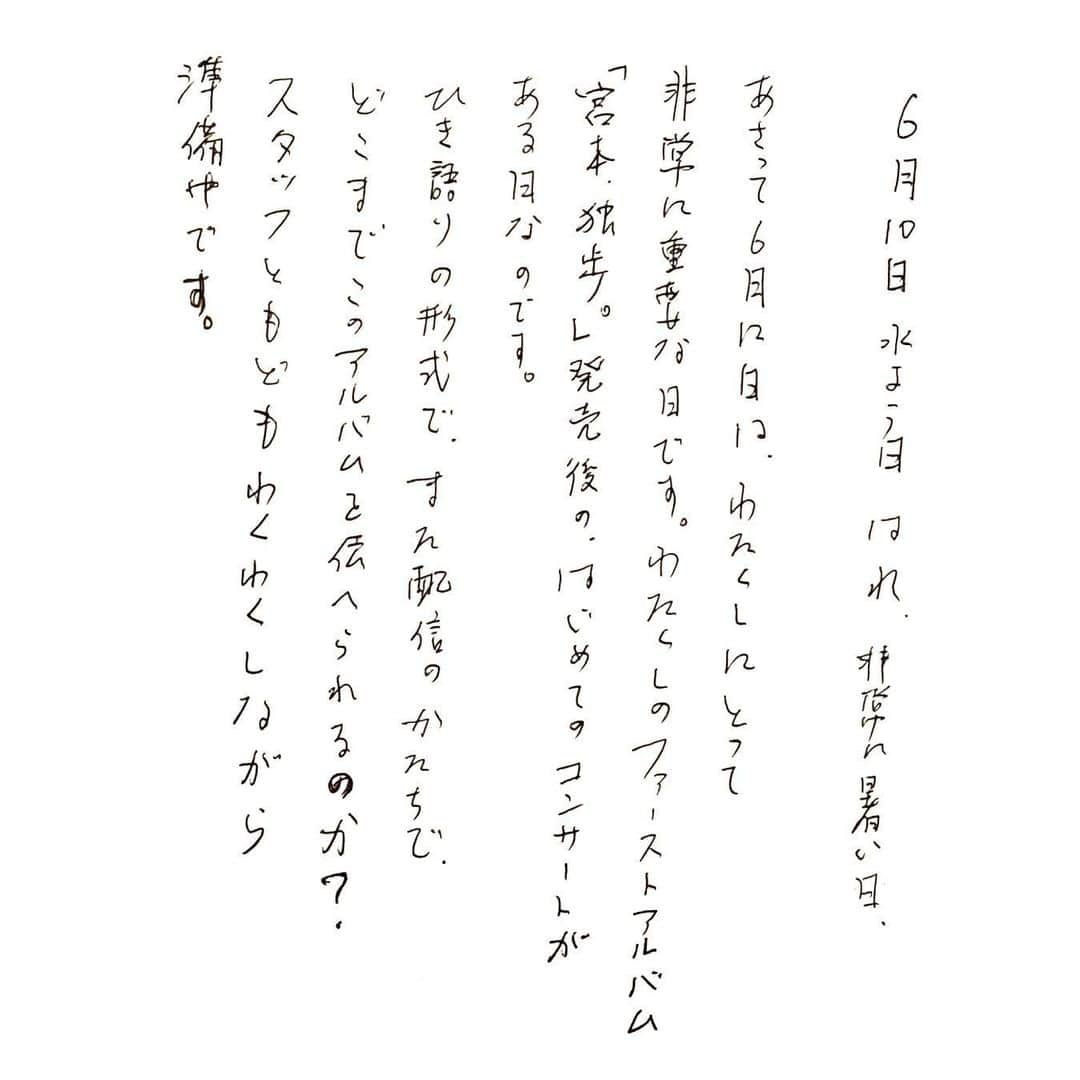 6月10日 水よう日 はれ、非常に暑い日、
あさって6月12日は、わたくしにとって
非常に重要な日です。わたくしのファーストアルバム
「宮本、独歩。」発売後の、はじめてのコンサートが
ある日なのです。
ひき語りの形式で、また配信のかたちで、
どこまでこのアルバムを伝へられるのか?、
スタッフともどもわくわくしながら
準備中です。